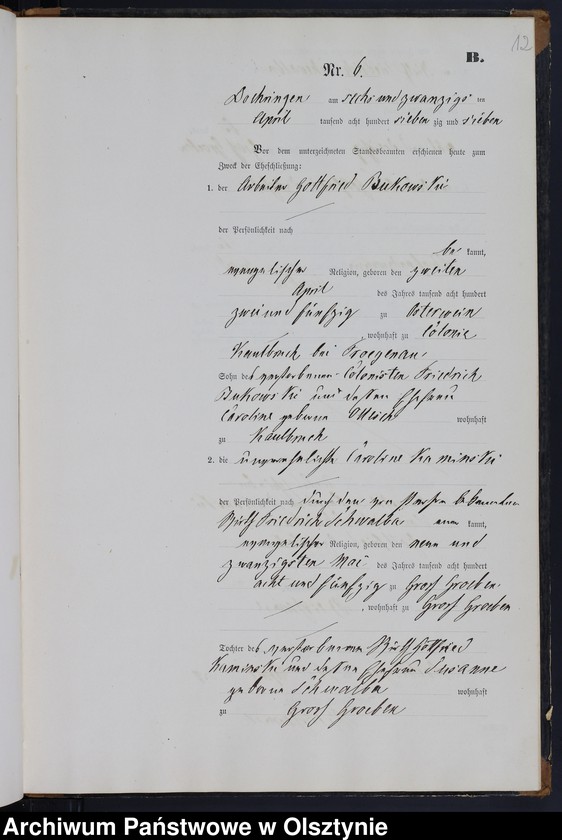 12
B.
Nr. 6.
Doehringen am sechs und zwanzigs ten
April tausend acht hundert sieben zig und sieben
Vor dem unterzeichneten Standesbeamten erschienen heute zum
Zweck der Eheschließung:
1. der Arbeiter Gottfried Bukowski
der Persönlichkeit nach
be kannt,
evangelischer Religion, geboren den zweiten
April des Jahres tausend acht hundert
zwei und fünfzig zu Osterwein
, wohnhaft zu Colonie
Kaulbruch bei Froegenau,
Sohn des verstorbenen Colonisten Friedrich
Bukowski und dessen Ehefrau
Caroline geborne wohnhaft
zu Kaulbruch
2. die unverehelichte Caroline Kaminski
der Persönlichkeit nach durch den von Person bekannten
Wirth Friedrich Schwalba aner kannt,
evangelischer Religion, geboren den neun und
zwanzigsten Mai des Jahres tausend acht hundert
acht und fünfzig zu Gross Groeben
, wohnhaft zu Gross Groeben
Tochter des verstorbenen Wirth Gottfried
Kaminski und dessen Ehefrau Susanne
geborne Schwalba wohnhaft
zu Gross Groeben
Archiwum Państwowe w Olsztynie